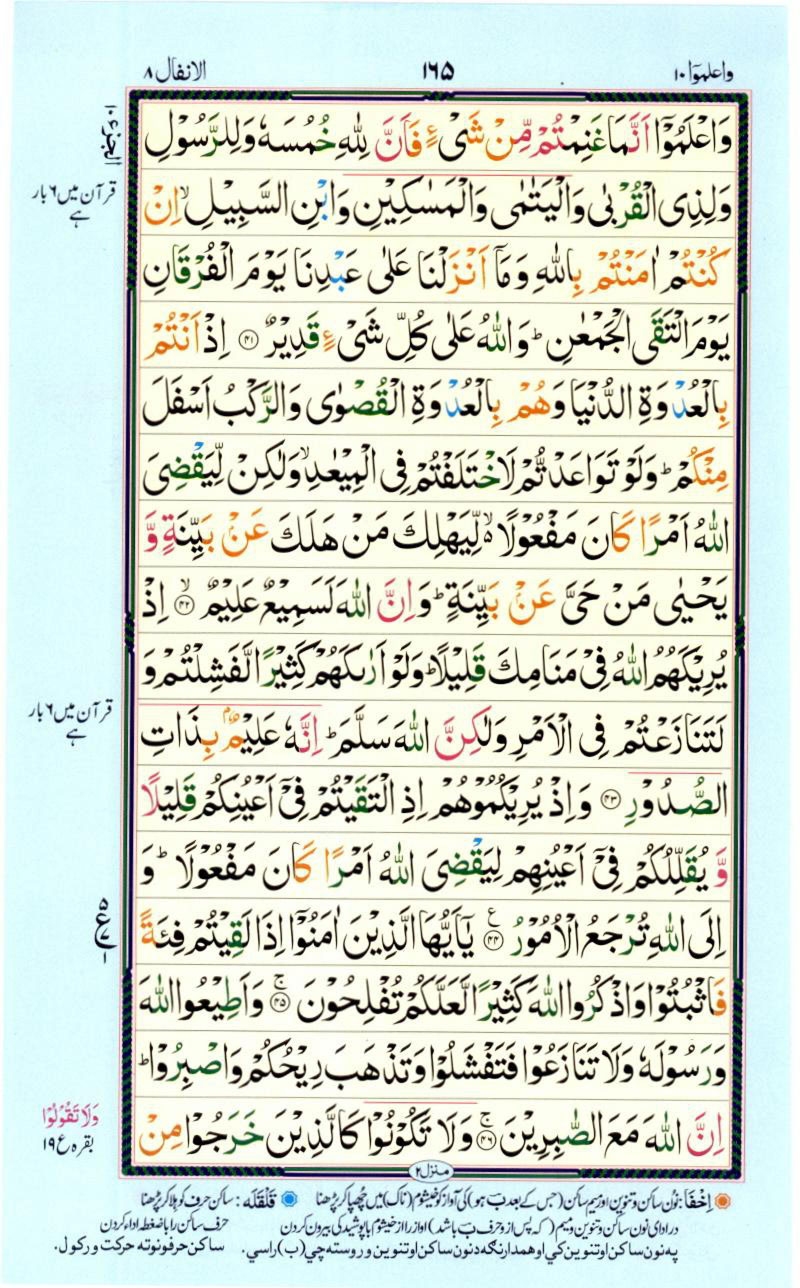 واعلموۤا ۱۰ ۱۶۵ الانفال ۸
وَاعْلَمُوْۤا اَنَّمَا غَنِمْتُمْ مِّنْ شَیْءٍ فَاَنَّ لِلّٰهِ خُمُسَهٗ وَلِلرَّسُوْلِ
وَلِذِی الْقُرْبٰی وَالْیَتٰمٰی وَالْمَسٰكِیْنِ وَابْنِ السَّبِیْلِ ۙ اِنْ
كُنْتُمْ اٰمَنْتُمْ بِاللّٰهِ وَمَاۤ اَنْزَلْنَا عَلٰی عَبْدِنَا یَوْمَ الْفُرْقَانِ
یَوْمَ الْتَقَی الْجَمْعٰنِ ؕ وَاللّٰهُ عَلٰی كُلِّ شَیْءٍ قَدِیْرٌ ﴿۴۱﴾ اِذْ اَنْتُمْ
بِالْعُدْوَةِ الدُّنْیَا وَهُمْ بِالْعُدْوَةِ الْقُصْوٰی وَالرَّكْبُ اَسْفَلَ
مِنْكُمْ ؕ وَلَوْ تَوَاعَدْتُّمْ لَاخْتَلَفْتُمْ فِی الْمِیْعٰدِ ۙ وَلٰكِنْ لِّیَقْضِیَ
اللّٰهُ اَمْرًا كَانَ مَفْعُوْلًا ۙ۬ لِّیَهْلِكَ مَنْ هَلَكَ عَنْۢ بَیِّنَةٍ وَّ
یَحْیٰی مَنْ حَیَّ عَنْۢ بَیِّنَةٍ ؕ وَاِنَّ اللّٰهَ لَسَمِیْعٌ عَلِیْمٌ ﴿۴۲﴾ ۙ اِذْ
یُرِیْكَهُمُ اللّٰهُ فِیْ مَنَامِكَ قَلِیْلًا ؕ وَلَوْ اَرٰىكَهُمْ كَثِیْرًا لَّفَشِلْتُمْ وَ
لَتَنَازَعْتُمْ فِی الْاَمْرِ وَلٰكِنَّ اللّٰهَ سَلَّمَ ؕ اِنَّهٗ عَلِیْمٌۢ بِذَاتِ
الصُّدُوْرِ ﴿۴۳﴾ وَاِذْ یُرِیْكُمُوْهُمْ اِذِ الْتَقَیْتُمْ فِیْۤ اَعْیُنِكُمْ قَلِیْلًا
وَّ یُقَلِّلُكُمْ فِیْۤ اَعْیُنِهِمْ لِیَقْضِیَ اللّٰهُ اَمْرًا كَانَ مَفْعُوْلًا ؕ وَ
اِلَی اللّٰهِ تُرْجَعُ الْاُمُوْرُ ﴿۴۴﴾ ع یٰۤاَیُّهَا الَّذِیْنَ اٰمَنُوْۤا اِذَا لَقِیْتُمْ فِئَةً
فَاثْبُتُوْا وَاذْكُرُوا اللّٰهَ كَثِیْرًا لَّعَلَّكُمْ تُفْلِحُوْنَ ﴿۴۵﴾ ۚ وَاَطِیْعُوا اللّٰهَ
وَرَسُوْلَهٗ وَلَا تَنَازَعُوْا فَتَفْشَلُوْا وَتَذْهَبَ رِیْحُكُمْ وَاصْبِرُوْا ؕ
اِنَّ اللّٰهَ مَعَ الصّٰبِرِیْنَ ﴿۴۶﴾ ۚ وَلَا تَكُوْنُوْا كَالَّذِیْنَ خَرَجُوْا مِنْ
الجزء ۱۰
قرآن میں ۶ بار
ہے
قرآن میں ۶ بار
ہے
وَلَا تَقُوْلُوْا
بقرہ ع ۱۹
منزل ۲
اِخْفَا: نُون ساکن وتنوین اور میم ساکن (جس کے بعد بَ ہو) کی آواز کو خیشوم (ناک) میں چھپا کر پڑھنا قَلْقَلَه: ساکن حرف کو ہلا کر پڑھنا
در ادای نون ساکن وتنوین ومیم (که پس از و حرف بَ باشد) اواز را از خیشوم با پوشید گی بیرون کردن حرف ساکن را با ضغطه ادا کردن
په نون ساکن او تنوین کي او همدا رنګه د نون ساکن او تنوین و روسته چي (ب) راسي. ساکن حرفونو ته حرکت ورکول.